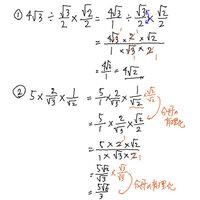 ① 4√3 ÷ √3/2 × √2/2 = 4√3/1 ÷ √3/2 × √2/2
= 4√3 × 2 × √2 / 1 × √3 × 2
= 4√2/1 = 4√2
② 5 × 2/√3 × 1/√2 = 5/1 × 2/√3 × 1/√2 × √2/√2 分母の有理化
= 5/1 × 2/√3 × √2/2
= 5 × 2 × √2 / 1 × √3 × 2
= 5√2/√3 × √3/√3 分母の有理化
= 5√6/3